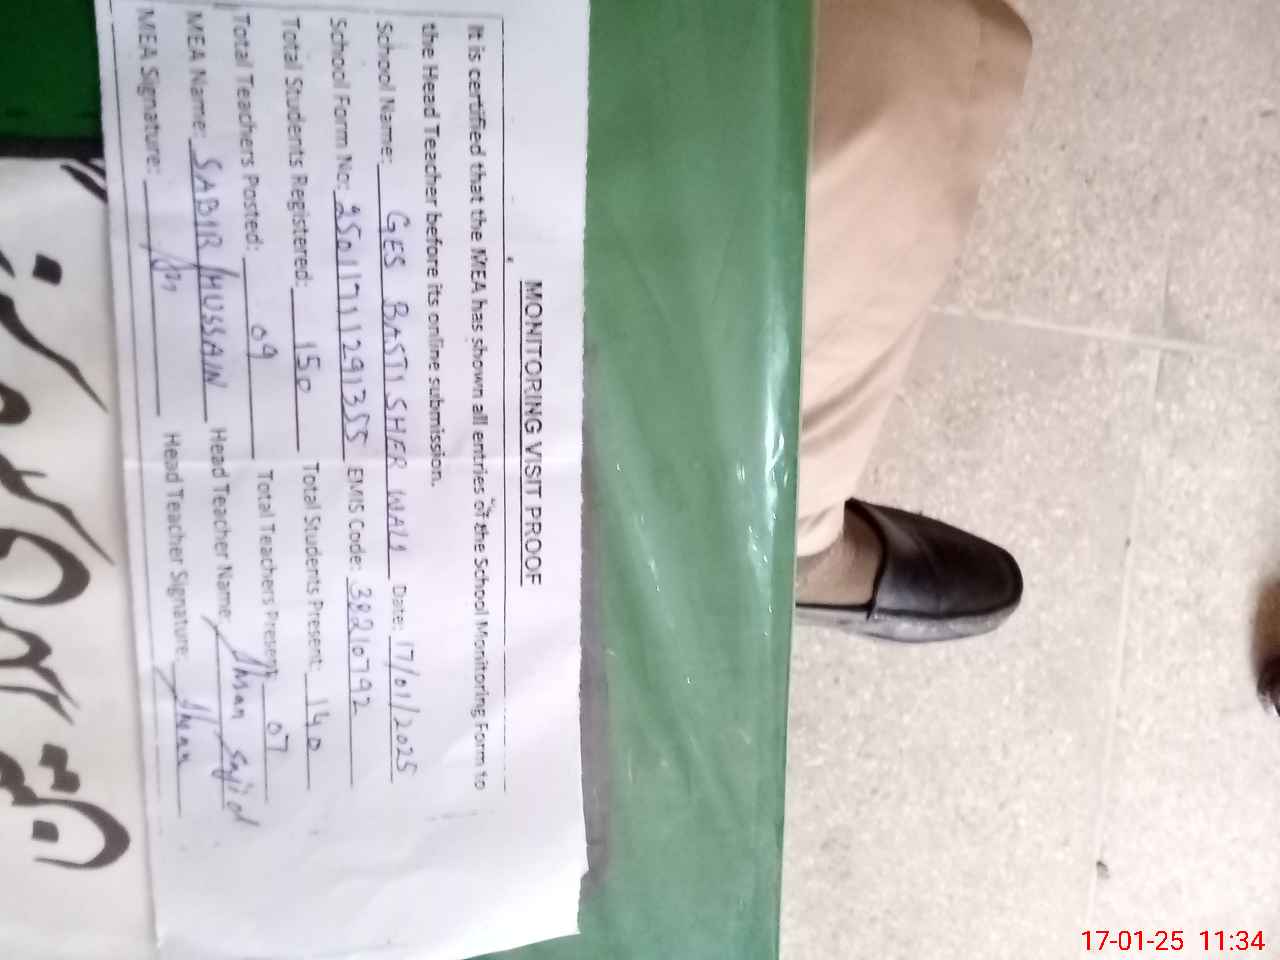 MONITORING VISIT PROOF
It is certified that the MEA has shown all entries of the School Monitoring Form to
the Head Teacher before its online submission.
School Name: GES BASTI SHER WALI Date: 17/01/2025
School Form No: 25011711291355 EMIS Code: 38210792
Total Students Registered: 150 Total Students Present: 140
Total Teachers Posted: 09 Total Teachers Present: 07
MEA Name: SABIR HUSSAIN Head Teacher Name: Ahsan Sajid
MEA Signature: Head Teacher Signature: Ahsan
17-01-25 11:34